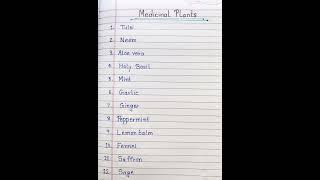 Medicinal Plants
1. Tulsi
2. Neem
3. Aloe vera
4. Holy Basil
5. Mint
6. Garlic
7. Ginger
8. Peppermint
9. Lemon balm
10. Fennel
11. Saffron
12. Sage